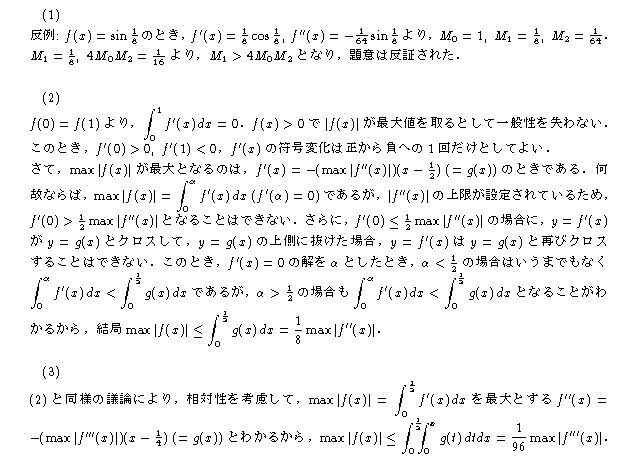 (1)
反例: f(x) = sin 1/8 のとき，f′(x) = 1/8 cos 1/8, f″(x) = −1/64 sin 1/8 より，M₀ = 1, M₁ = 1/8, M₂ = 1/64．
M₁ = 1/8, 4M₀M₂ = 1/16 より，M₁ > 4M₀M₂ となり，題意は反証された．
(2)
f(0) = f(1) より，∫₀¹ f′(x) dx = 0．f(x) > 0 で |f(x)| が最大値を取るとして一般性を失わない．
このとき，f′(0) > 0, f′(1) < 0，f′(x) の符号変化は正から負への 1 回だけとしてよい．
さて，max |f(x)| が最大となるのは，f′(x) = −(max |f″(x)|)(x − 1/2) (= g(x)) のときである．何
故ならば，max |f(x)| = ∫₀^α f′(x) dx (f′(α) = 0) であるが，|f″(x)| の上限が設定されているため，
f′(0) > 1/2 max |f″(x)| となることはできない．さらに，f′(0) ≤ 1/2 max |f″(x)| の場合に，y = f′(x)
が y = g(x) とクロスして，y = g(x) の上側に抜けた場合，y = f′(x) は y = g(x) と再びクロス
することはできない．このとき，f′(x) = 0 の解を α としたとき，α < 1/2 の場合はいうまでもなく
∫₀^α f′(x) dx < ∫₀^(1/2) g(x) dx であるが，α > 1/2 の場合も ∫₀^α f′(x) dx < ∫₀^(1/2) g(x) dx となることがわ
かるから，結局 max |f(x)| ≤ ∫₀^(1/2) g(x) dx = 1/8 max |f″(x)|．
(3)
(2) と同様の議論により，相対性を考慮して，max |f(x)| = ∫₀^(1/2) f′(x) dx を最大とする f″(x) =
−(max |f‴(x)|)(x − 1/4) (= g(x)) とわかるから，max |f(x)| ≤ ∫₀^(1/2) ∫₀^x g(t) dtdx = 1/96 max |f‴(x)|．